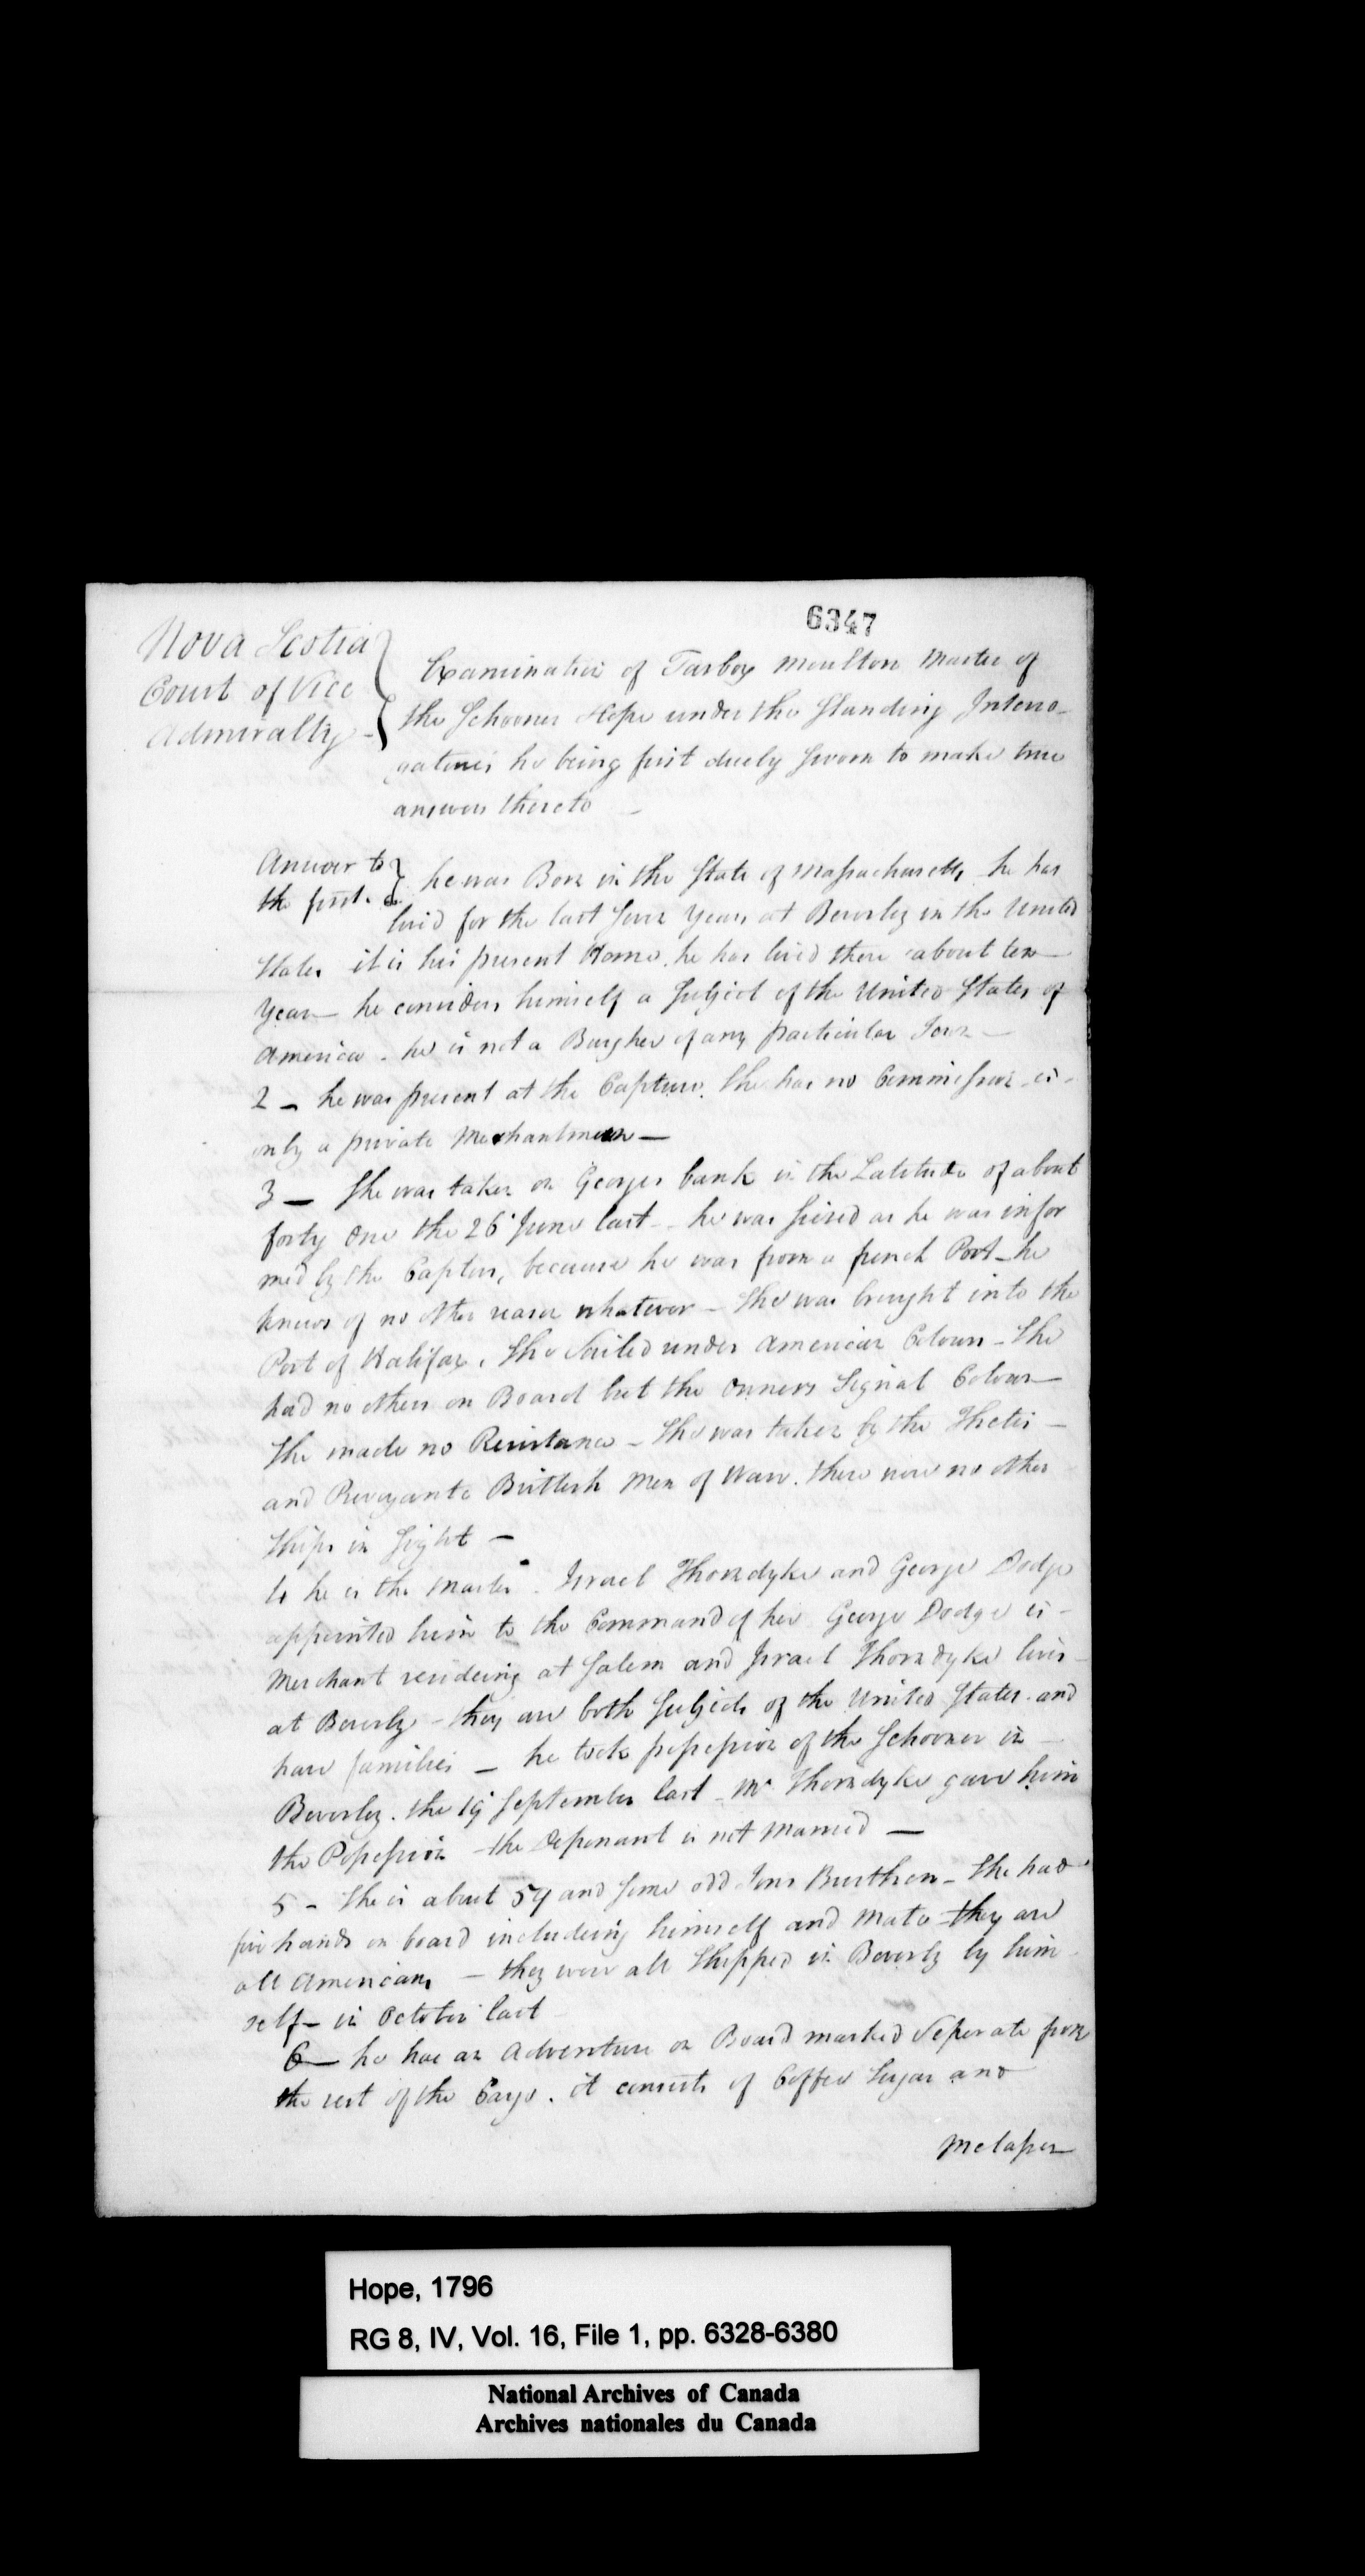 6347
Nova Scotia
Court of Vice
Admiralty
Examination of Tarbox Moulton Master of
the Schooner Hope under the Standing Interro-
gatories he being first duely Sworn to make true
answers thereto
Answer to
the first.
he was Born in the State of Massachusetts he has
livid for the last Seven Years at Beverley in the United
States it is his present Home. he has livid there about ten
Years he considers himself a Subject of the United States of
America. he is not a Burgher of any particular Town
2 - he was present at the Capture. She has no Commission is
only a private Merchantman
3 - She was taken on Georges bank in the Latitude of about
forty One the 26 June last - he was Seized as he was infor
med by the Captors, because he was from a french Port - he
knows of no other reason whatever - She was brought into the
Port of Halifax. She Sailed under American Colours - She
had no others on Board but the Owners Signal Colour
She made no Resistance - She was taken by the Thetis
and Prevoyante Brittish Men of Warr. there were no other
Ships in Sight -
he is the Master. Israel Thorndyke and George Dodge
appointed him to the Command of her George Dodge is
Merchant resideing at Salem and Israel Thorndyke lives
at Beverly - they are both Subjects of the United States. and
have families - he took possession of the Schooner in
Beverley. the 19 September last - Mr. Thorndyke gave him
the Possession - the Deponant is not Married -
5 - She is about 54 and Some odd Tons Burthen - She had
five hands on board includeing himself and Mate - they are
all Americans - they were all Shipped in Beverly by him
self - in October last
6 - he has an Adventure on Board marked Seperate from
the rest of the Cargo. it consists of Coffee Sugar and
Molasses
Hope, 1796
RG 8, IV, Vol. 16, File 1, pp. 6328-6380
National Archives of Canada
Archives nationales du Canada